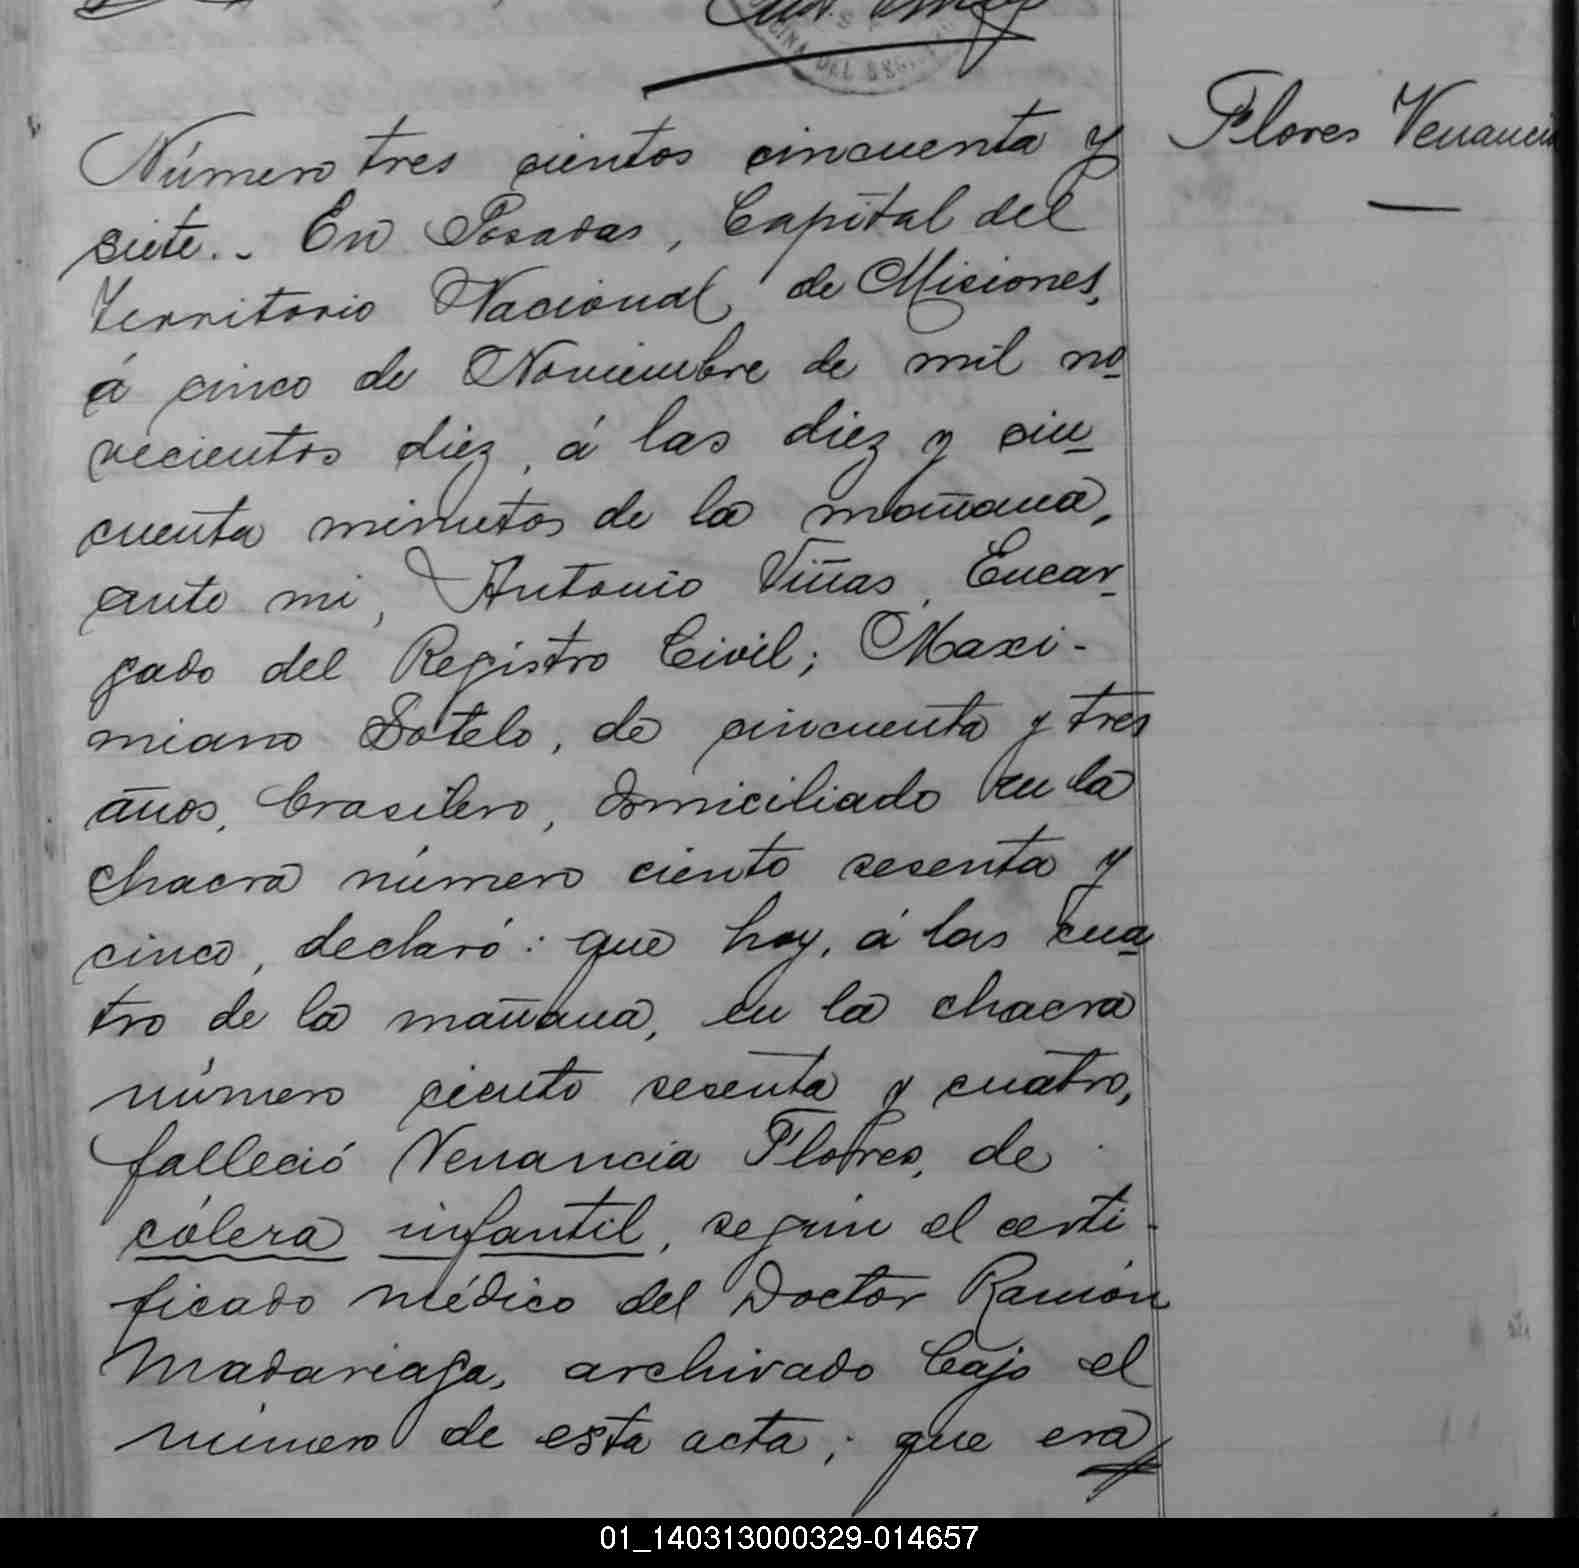 OFICINA DEL
Flores Venancia
Número tres cientos cincuenta y
siete.. En Posadas, Capital del
Territorio Nacional de Misiones,
á cinco de Noviembre de mil no
vecientos diez, á las diez y cin
cuenta minutos de la mañana,
ante mi, Antonio Viñas, Encar
gado del Registro Civil; Maxi-
miano Sotelo, de cincuenta y tres
años, brasilero, domiciliado en la
chacra número ciento sesenta y
cinco, declaró: que hoy, á las cua
tro de la mañana, en la chacra
número ciento sesenta y cuatro,
falleció Venancia Flores, de
cólera infantil, segun el certi-
ficado médico del Doctor Ramón
Madariaga, archivado bajo el
número de esta acta; que era
01_140313000329-014657